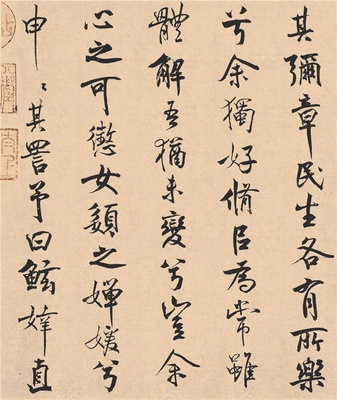 其彌章民生各有所樂
兮余獨好脩以為常雖
體解吾猶未變兮豈余
心之可懲女顏之嬋媛兮
申〻其詈予曰鮌婞直